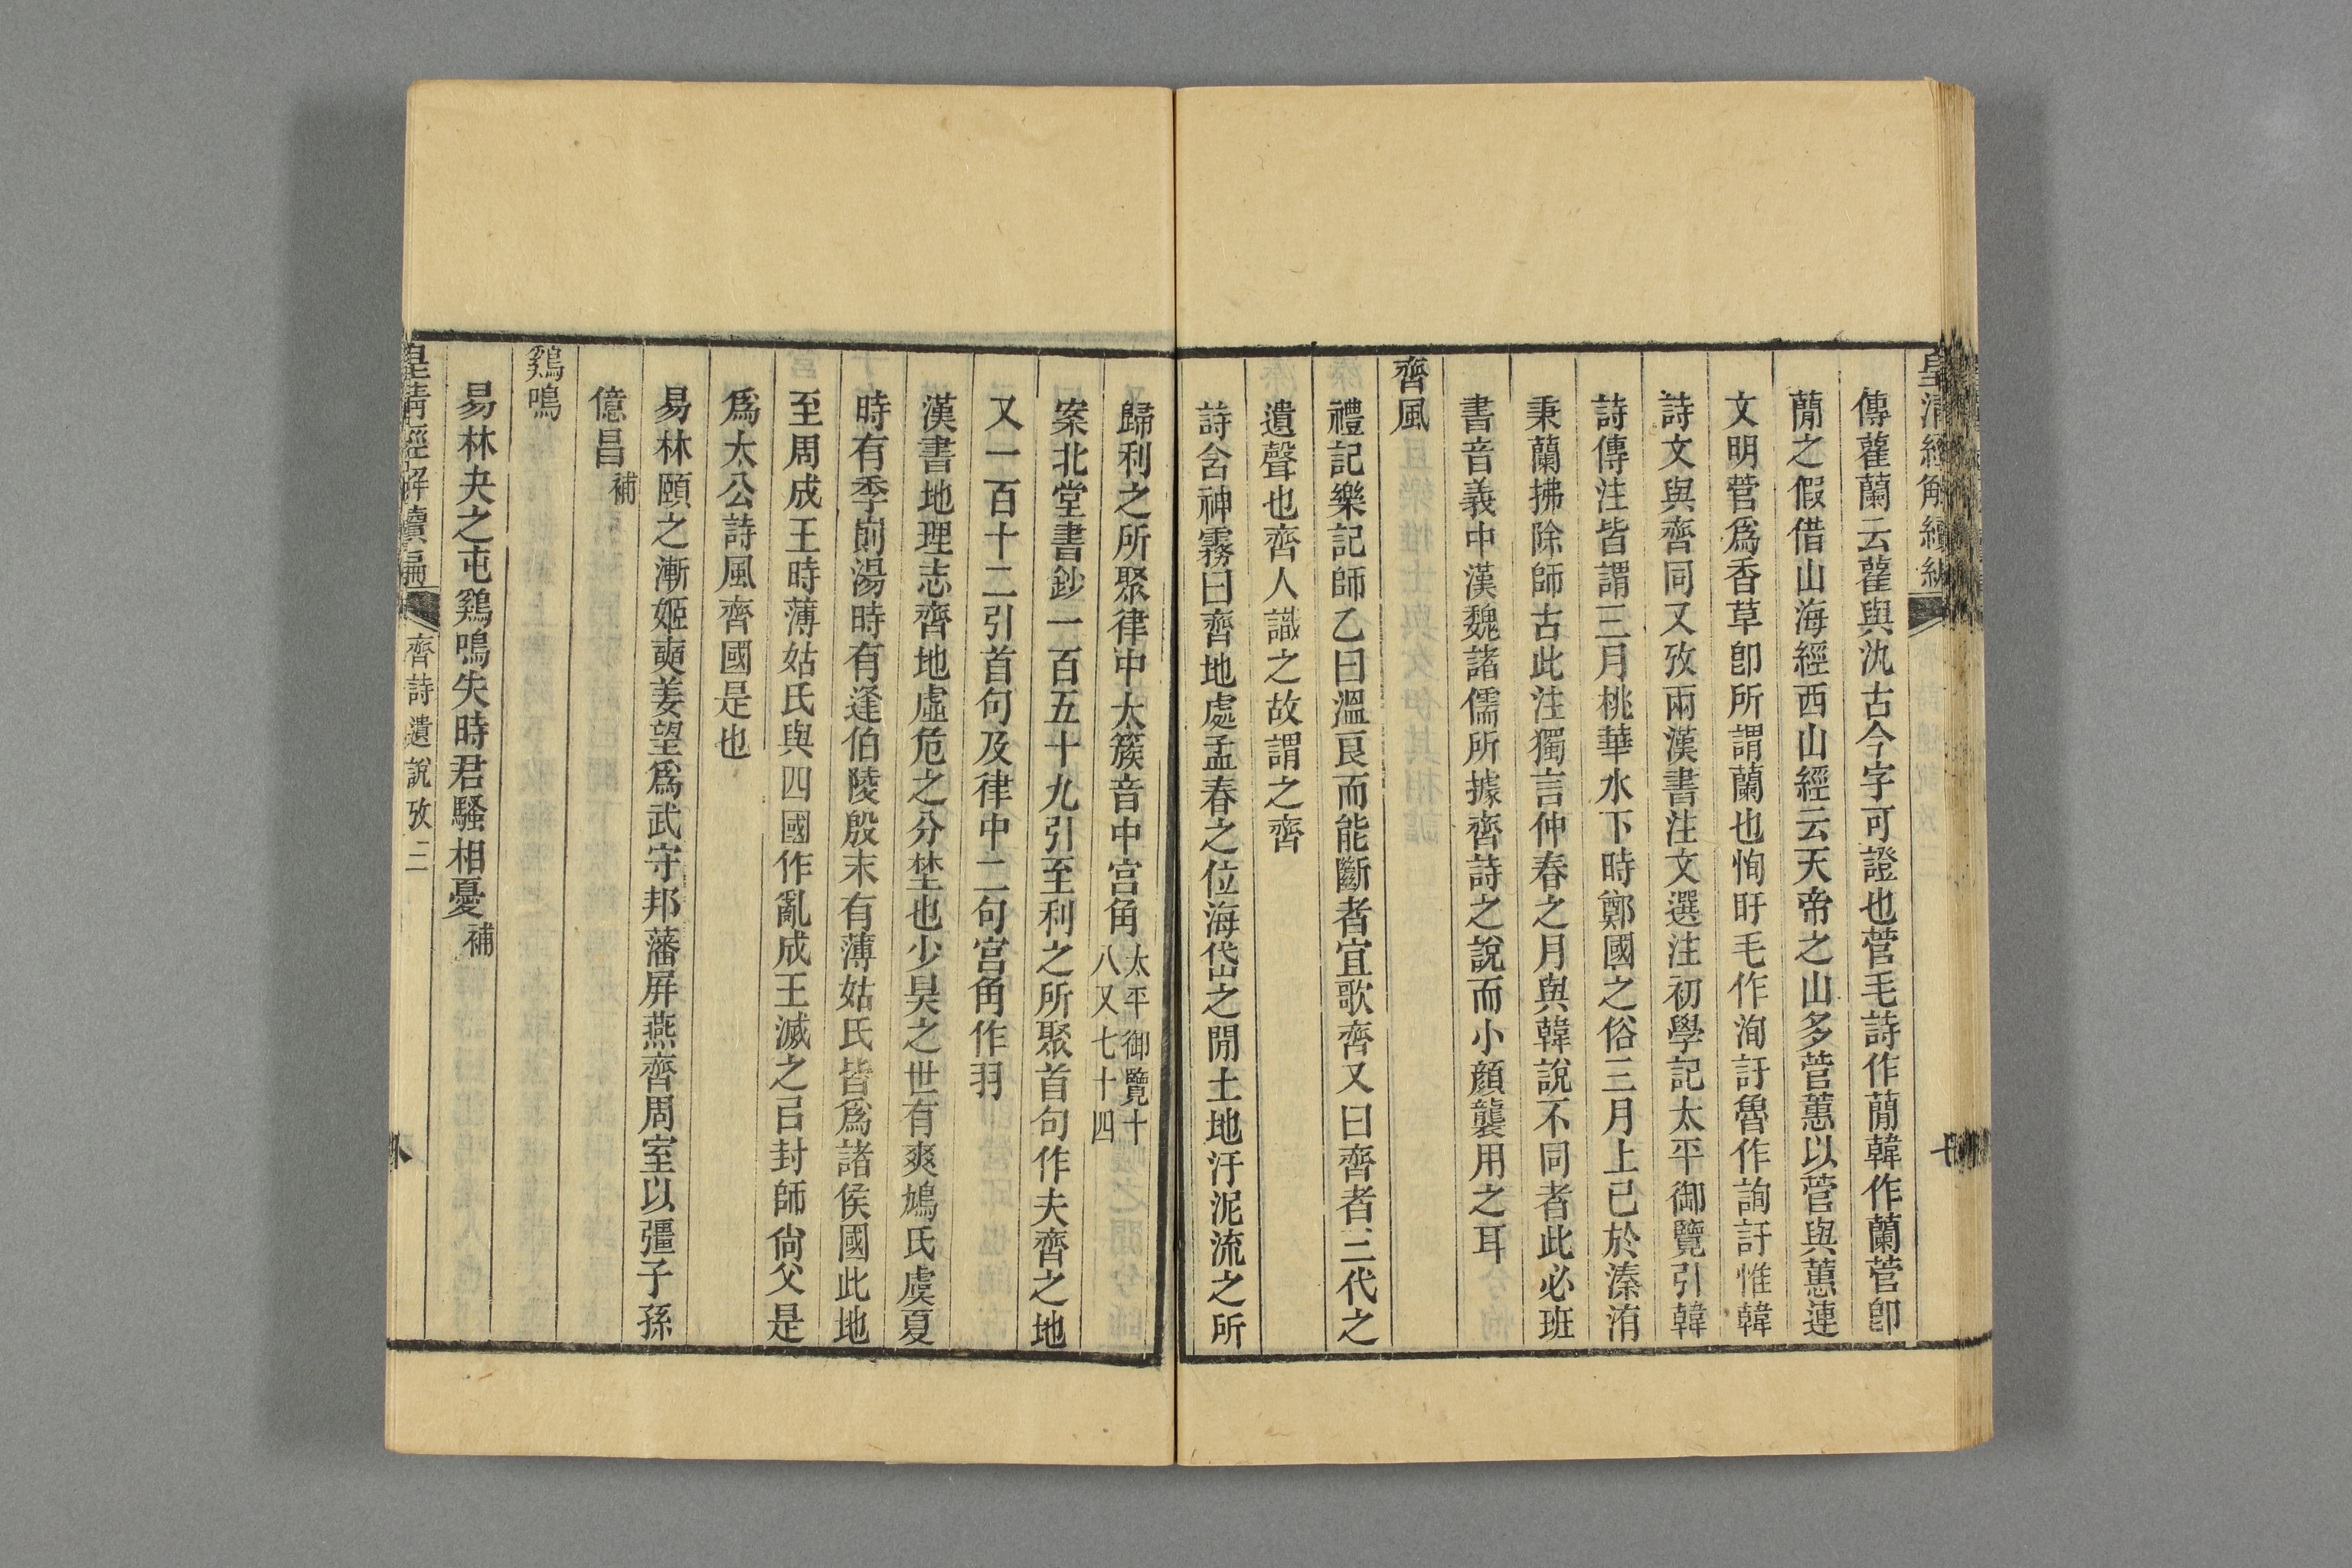 皇清經解續編
傳雚蘭云雚與汍古今字可證也菅毛詩作蕑韓作蘭菅卽
蕑之假借山海經西山經云天帝之山多菅蕙以菅與蕙連
文明菅爲香草卽所謂蘭也恂盱毛作洵訏魯作詢訏惟韓
詩文與齊同又攷兩漢書注文選注初學記太平御覽引韓
詩傳注皆謂三月桃華水下時鄭國之俗三月上巳於溱洧
秉蘭拂除師古此注獨言仲春之月與韓說不同者此必班
書音義中漢魏諸儒所據齊詩之說而小顏襲用之耳
齊風
禮記樂記師乙曰溫良而能斷者宜歌齊又曰齊者三代之
遺聲也齊人識之故謂之齊
詩含神霧曰齊地處孟春之位海岱之閒土地汙泥流之所
歸利之所聚律中太簇音中宮角太平御覽十八又七十四
案北堂書鈔一百五十九引至利之所聚首句作夫齊之地
又一百十二引首句及律中二句宮角作羽
漢書地理志齊地虛危之分埜也少昊之世有爽鳩氏虞夏
時有季崱湯時有逢伯陵殷末有薄姑氏皆爲諸侯國此地
至周成王時薄姑氏與四國作亂成王滅之㠯封師尙父是
爲太公詩風齊國是也
易林頤之漸姬奭姜望爲武守邦藩屏燕齊周室以彊子孫
億昌補
鷄鳴
易林夬之屯鷄鳴失時君騷相憂補
皇清經解續編
齊詩遺說攷二